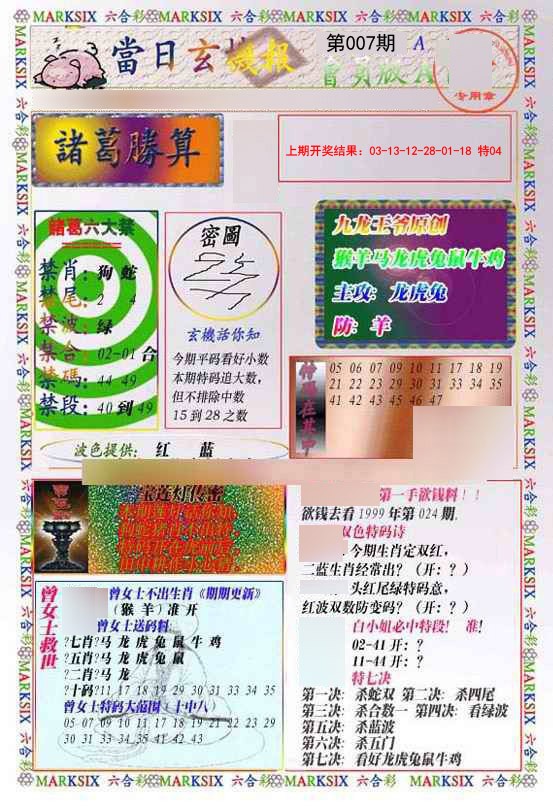 MARKSIX 六合彩 MARKSIX 六合彩 MARKSIX 六合彩 MARKSIX 六合彩
當日玄機報
第007期 A
會員版A
专用章
諸葛勝算
上期开奖结果：03-13-12-28-01-18 特04
諸葛六大禁
禁肖：狗 蛇
禁尾：2 4
禁波：绿
禁合：02-01 合
禁碼：44 49
禁段：40 到 49
密圖
玄機話你知
今期平码看好小数
本期特码追大数，
但不排除中数
15 到 28 之数
九龙王爷原创
猴羊马龙虎兔鼠牛鸡
主攻：龙虎兔
防：羊
05 06 07 09 10 11 17 18 19
21 22 23 29 30 31 33 34 35
41 42 43 46 47
波色提供： 红 蓝
第一手欲钱料！！
欲钱去看 1999 年第 024 期.
双色特码诗
今期生肖定双红，
二蓝生肖经常出？（开：？）
头红尾绿特码意，
红波双数防变码？（开：？）
白小姐必中特段！ 准！
02-41 开：？
11-44 开：？
特七决
第一决：杀蛇双 第二决：杀四尾
第三决：杀合数一 第四决：看绿波
第五决：杀蓝波
第六决：杀五门
第七决：看好龙虎兔鼠牛鸡
曾女士救世
曾女士不出生肖《期期更新》
（猴 羊）准 开
曾女士送码料：
?七肖?马 龙 虎 兔 鼠 牛 鸡
?五肖?马 龙 虎 兔 鼠
?二肖?马 龙
?十码?11 17 18 19 29 30 31 33 34 35
曾女士特码大范围（十中八）
05 07 09 10 11 17 18 19 21 22 23 29
30 31 33 34 35 41 42 43
MARKSIX 六合彩 MARKSIX 六合彩 MARKSIX 六合彩 MARKSIX 六合彩